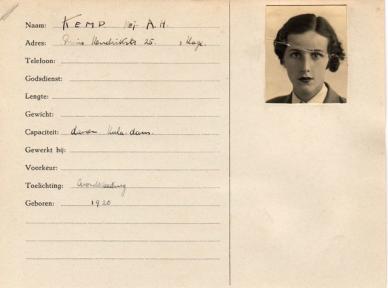 Naam: KEMP Mej. A.H.
Adres: Prins Hendrikstr 25. , Hage.
Telefoon:
Godsdienst:
Lengte:
Gewicht:
Capaciteit: dansen Hula-dans.
Gewerkt bij:
Voorkeur:
Toelichting: Avondkleeding
Geboren: 1920